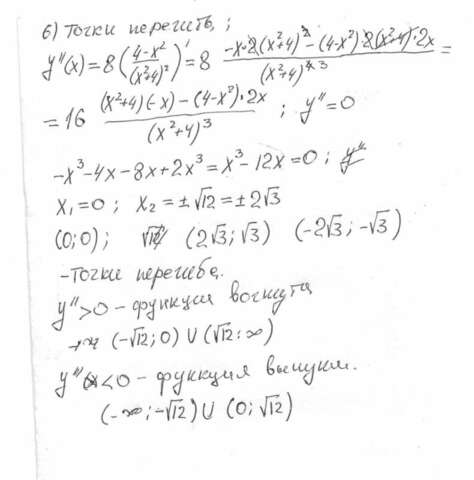 6) Точки перегиб. ;
y''(x) = 8 ((4-x²)/(x²+4)²)' = 8 (-x·2(x²+4)² - (4-x²)·2(x²+4)·2x)/(x²+4)³ =
= 16 ((x²+4)(-x) - (4-x²)·2x)/(x²+4)³ ; y''=0
-x³-4x-8x+2x³ = x³-12x=0 ; y''
x₁=0 ; x₂ = ±√12 = ±2√3
(0;0) ; √12 (2√3; √3) (-2√3; -√3)
-Точки перегиба.
y''>0 - функция вогнута
(-√12; 0) ∪ (√12; ∞)
y'' <0 - функция выпукл.
(-∞; -√12) ∪ (0; √12)